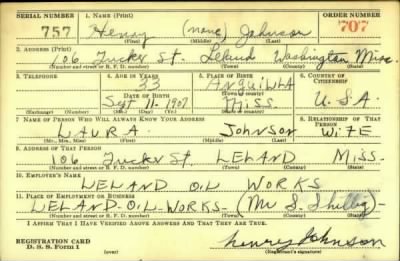 SERIAL NUMBER 1. NAME (Print) ORDER NUMBER
757 Henry (none) Johnson 707
(First) (Middle) (Last)
2. ADDRESS (Print)
106 Tucker St. Leland Washington Miss.
(Number and street or R. F. D. number) (Town) (County) (State)
3. TELEPHONE 4. AGE IN YEARS 5. PLACE OF BIRTH 6. COUNTRY OF CITIZENSHIP
33 ANGUILLA
DATE OF BIRTH (Town or county)
Sept 11. 1907 MISS. U.S.A.
(Exchange) (Number) (Mo.) (Day) (Yr.) (State or country)
7. NAME OF PERSON WHO WILL ALWAYS KNOW YOUR ADDRESS 8. RELATIONSHIP OF THAT PERSON
LAURA JOHNSON WIFE
(Mr., Mrs., Miss) (First) (Middle) (Last)
9. ADDRESS OF THAT PERSON
106 Tucker St. LELAND MISS.
(Number and street or R. F. D. number) (Town) (County) (State)
10. EMPLOYER'S NAME
LELAND OIL WORKS
11. PLACE OF EMPLOYMENT OR BUSINESS
LELAND-OIL-WORKS- (Mr S.
(Number and street or R. F. D. number) (Town) (County) (State)
I AFFIRM THAT I HAVE VERIFIED ABOVE ANSWERS AND THAT THEY ARE TRUE.
REGISTRATION CARD
D. S. S. Form 1 (over) Henry Johnson
(Registrant's signature)